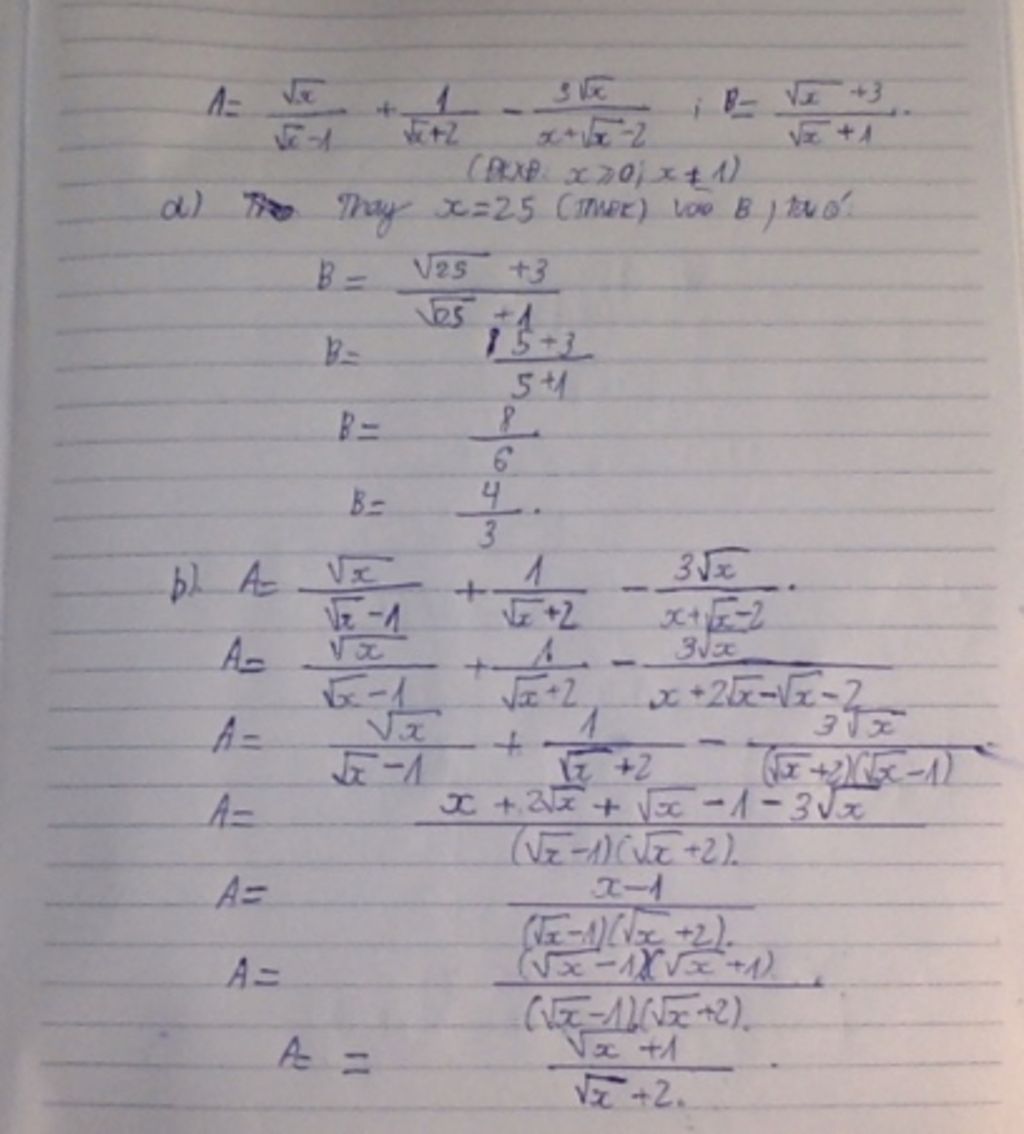 A = √x/(√x-1) + 1/(√x+2) - 3√x/(x+√x-2) ; B = (√x+3)/(√x+1).
(ĐKXĐ: x≥0; x≠1)
a) Thay x=25 (TMĐK) vào B, ta có:
B = (√25+3)/(√25+1)
B = (5+3)/(5+1)
B = 8/6
B = 4/3.
b). A = √x/(√x-1) + 1/(√x+2) - 3√x/(x+√x-2).
A = √x/(√x-1) + 1/(√x+2) - 3√x/(x+2√x-√x-2)
A = √x/(√x-1) + 1/(√x+2) - 3√x/((√x+2)(√x-1))
A = (x+2√x+√x-1-3√x)/((√x-1)(√x+2)).
A = (x-1)/((√x-1)(√x+2)).
A = ((√x-1)(√x+1))/((√x-1)(√x+2)).
A = = (√x+1)/(√x+2).